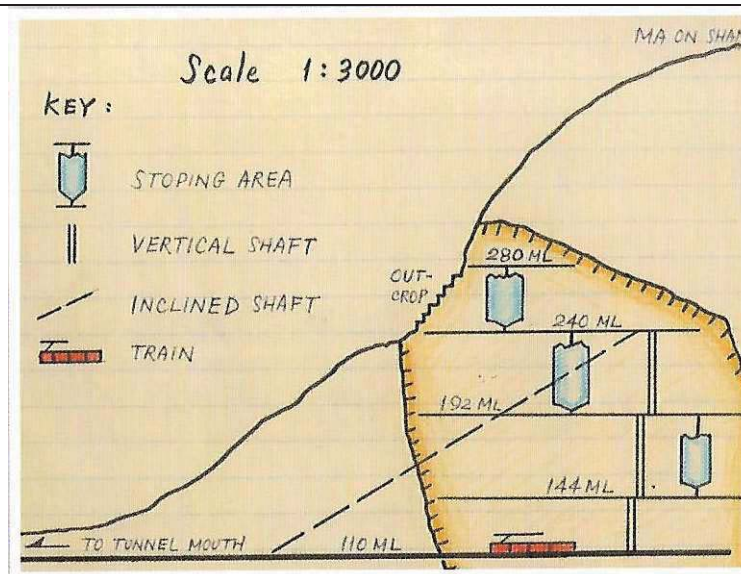 MA ON SHAN
Scale 1:3000
KEY:
STOPING AREA
VERTICAL SHAFT
INCLINED SHAFT
TRAIN
OUT-
CROP
280 ML
240 ML
192 ML
144 ML
TO TUNNEL MOUTH
110 ML